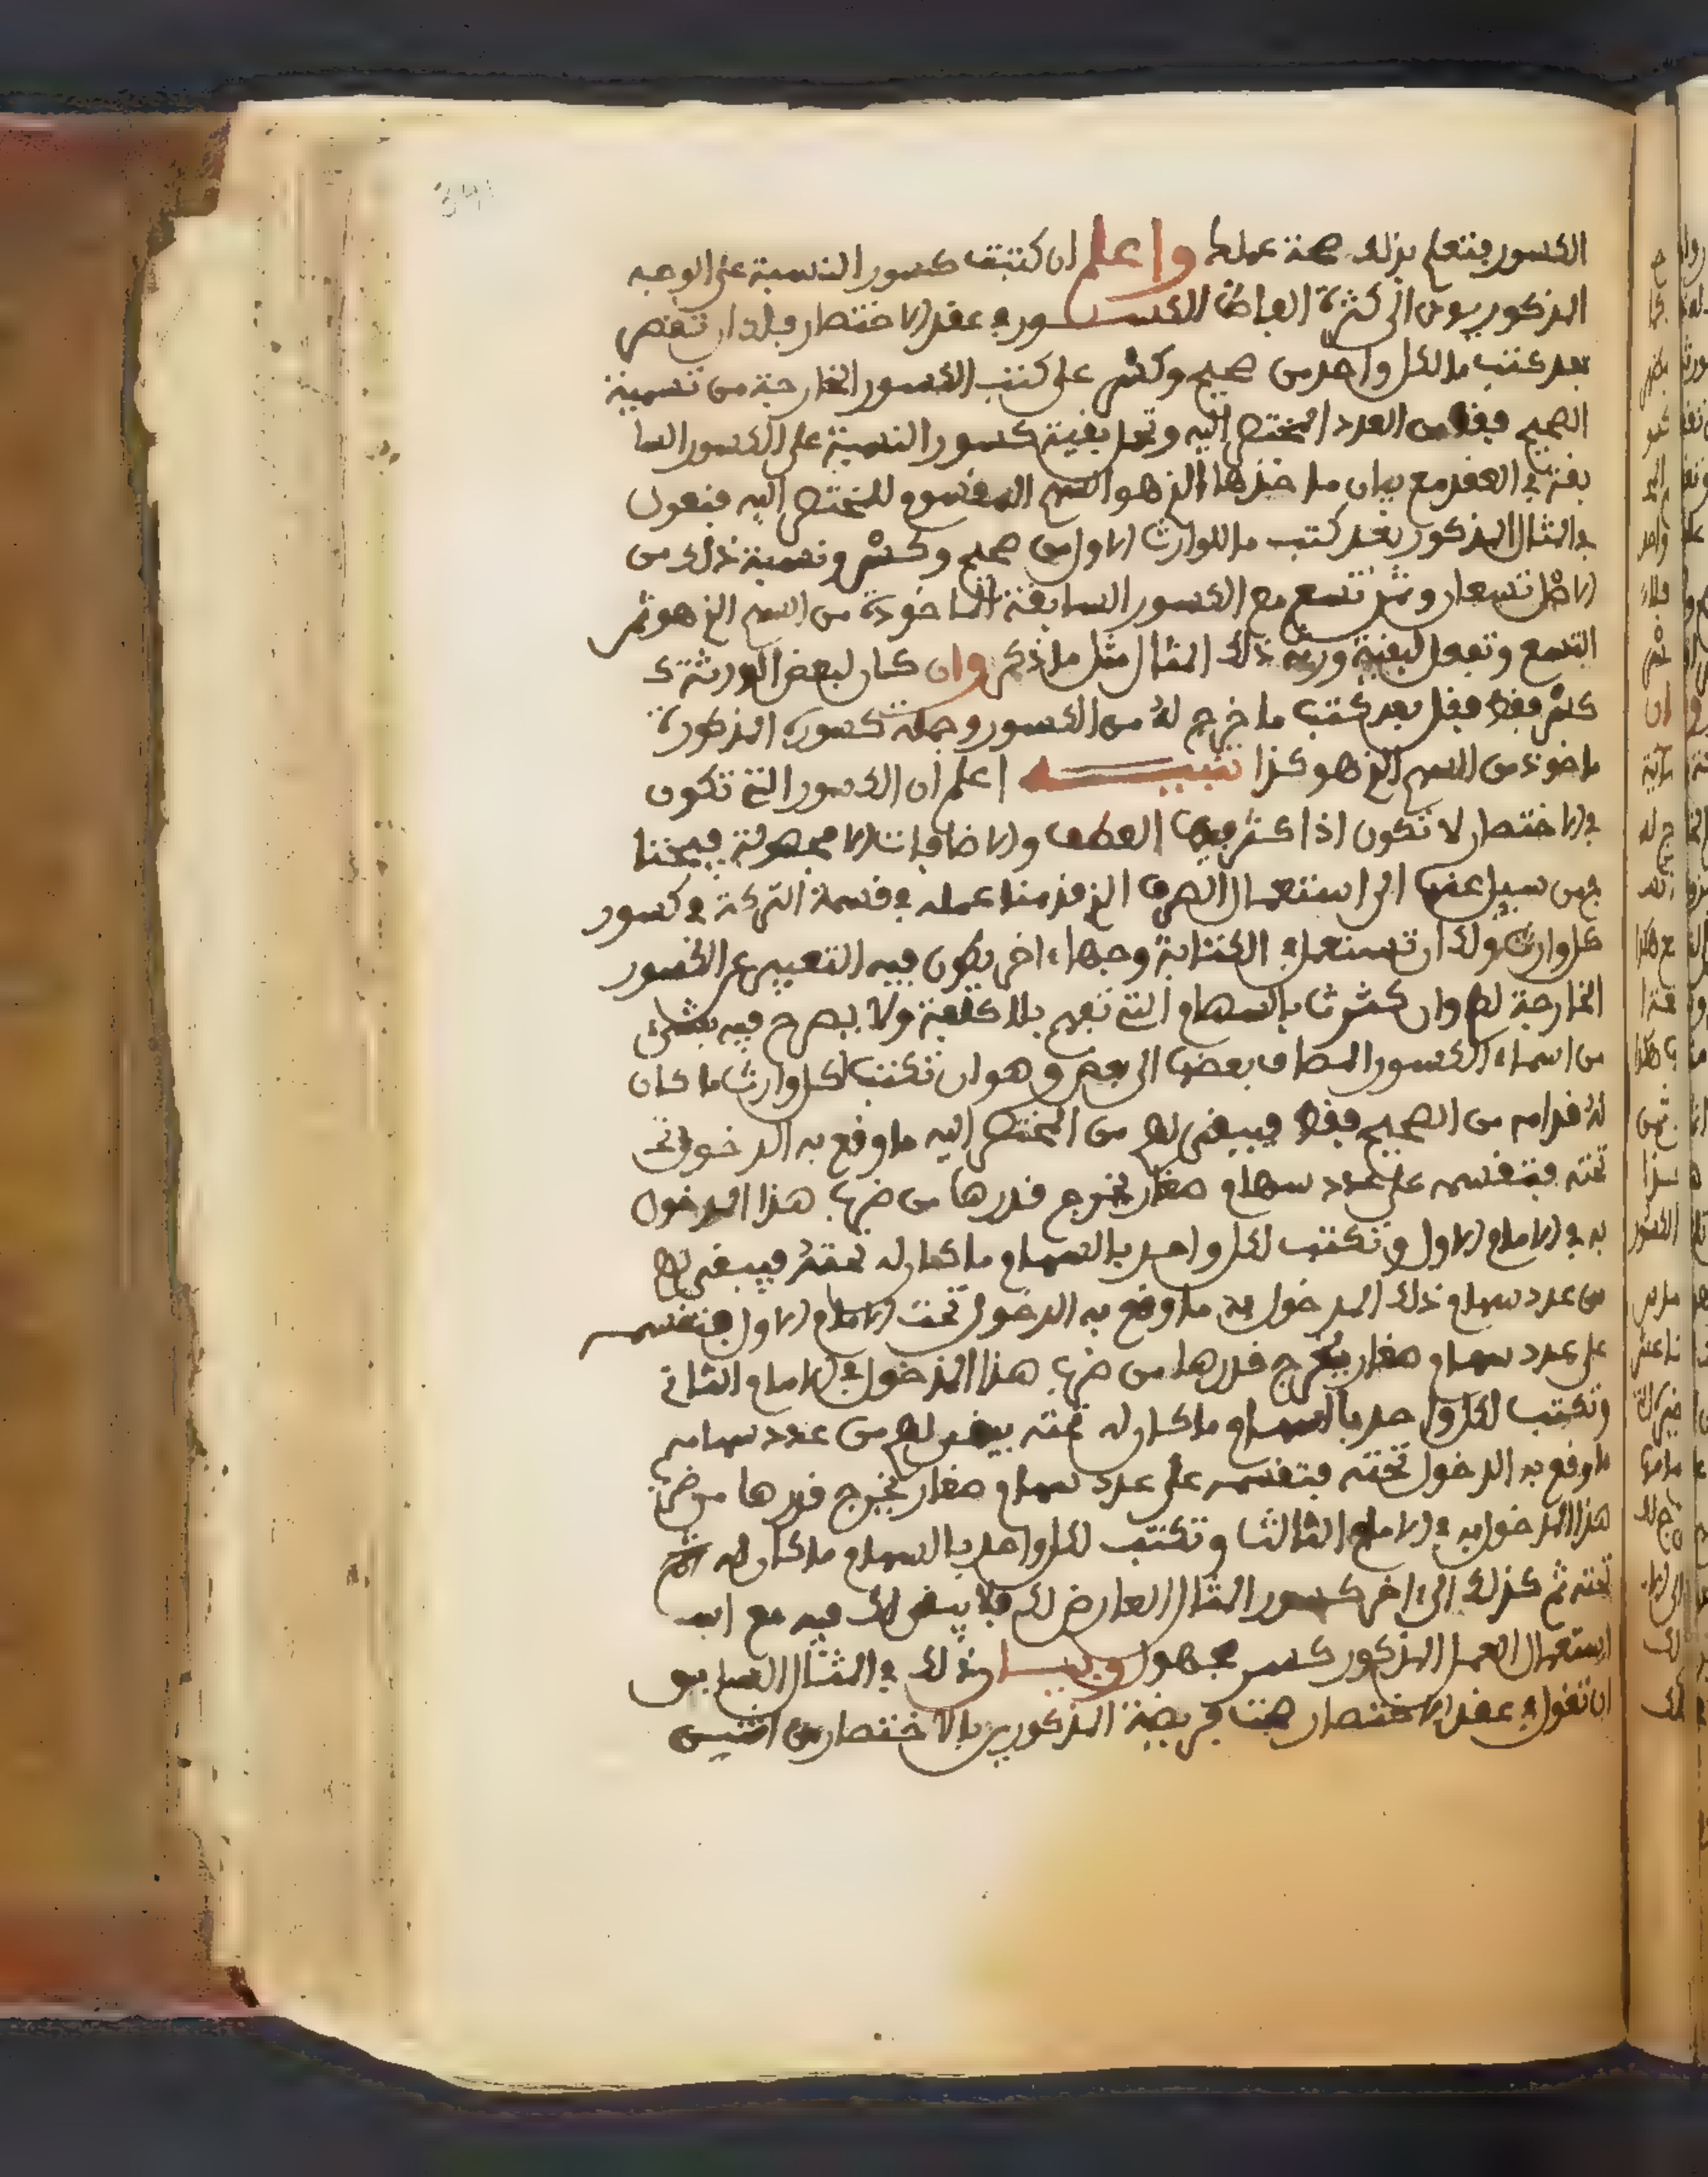 الكسور فتعلم بذلك صحة عملك واعلم ان كتبت كسور النسبة على الوجه
المذكور يودي الى كثرة الفاظ الكسور في عقد الاختصار فلك ان تقتصر
بعد كتب ما لكل واحد من صحيح وكسر على كتب الكسور الخارجة من تسمية
الصحيح فقط من العدد المختصر اليه وتحل بقية كسور النسبة على الكسور السا
بقة في العقد مع بيان ماخذها الذي هو السهم المقسوم للمختصر اليه فتقول
في المثال المذكور بعد كتب ما للوارث الاول من صحيح وكسر ونسبة ذلك من
الاصل تسعان وثمن تسع مع الكسور السابقة الماخوذة من السهم الذي هو ثمن
التسع وتفعل لبقية ورثة ذلك المثال مثل ما ذكر وان كان لبعض الورثة
كسر فقط فقل بعد كتب ما خرج له من الكسور وجملة كسوره المذكورة
ماخوذة من السهم الذي هو كذا تنبيه اعلم ان الكسور التي تكون
في الاختصار لا تكون اذا كثر فيها العطف والاضافات الا مجهولة فيحتا
ج من سبيل عنها الى استعمال الصرف الذي قدمنا عمله في قسمة التركة في كسور
كل وارث ولك ان تستعمل في الكتابة وجها ءاخر يكون فيه التعبير عن الكسور
الخارجة لهم وان كثرت بالسهام التي تفهم بلا كلفة ولا يصرح فيه بشيء
من اسماء الكسور المضاف بعضها الى بعض وهو ان تكتب لكل وارث ما كان
له قدامه من الصحيح فقط فيبقى لهم من المختصر اليه ما وقع به الدخول تحـ
تحته فتقسمه على عدد سهام صغار يخرج قدرها من ضرب هذا المدخول
به في الامام الاول وتكتب لكل واحد بالسهام ما كان له تحته فيبقى لهم
من عدد سهام ذلك المدخول به ما وقع به الدخول تحت الامام الاول فتقسمه
على عدد سهام صغار يخرج قدرها من ضرب هذا المدخول في الامام الثاني
وتكتب لكل واحد بالسهام ما كان له تحته يبقى لهم من عدد سهامه
ما وقع به الدخول تحته فتقسمه على عدد سهام صغار يخرج قدرها من ضرب
هذا المدخول به في الامام الثالث وتكتب لكل واحد بالسهام ما كان له
تحته ثم كذلك الى ءاخر كسور المثال العارض لك فلا يبقى لك فيه مع
استعمال العمل المذكور كسر مجهول وبيان ذلك في المثال السابق
ان تقول في عقد الاختصار صحت فريضة المذكورين بالاختصار من اثنين